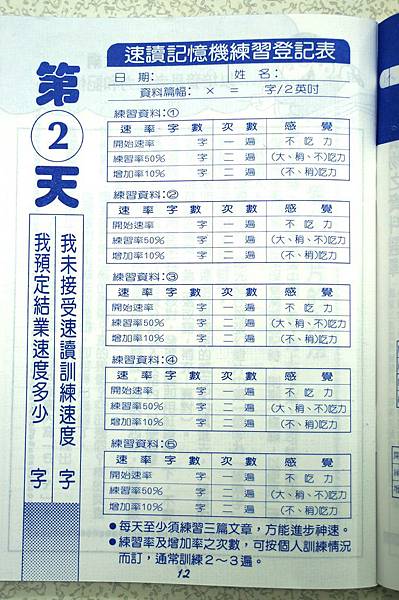 速讀記憶機練習登記表
日 期： 姓 名：
資料篇幅： × ＝ 字/2英吋
第
2
天
我未接受速讀訓練速度 字
我預定結業速度多少 字
練習資料：①
速 率 字 數 次 數 感 覺
開始速率 字 一 遍 不 吃 力
練習率50% 字 二 遍 (大、稍、不)吃力
增加率10% 字 二 遍 (不、稍)吃力
練習資料：②
速 率 字 數 次 數 感 覺
開始速率 字 一 遍 不 吃 力
練習率50% 字 二 遍 (大、稍、不)吃力
增加率10% 字 二 遍 (不、稍)吃力
練習資料：③
速 率 字 數 次 數 感 覺
開始速率 字 一 遍 不 吃 力
練習率50% 字 二 遍 (大、稍、不)吃力
增加率10% 字 二 遍 (不、稍)吃力
練習資料：④
速 率 字 數 次 數 感 覺
開始速率 字 一 遍 不 吃 力
練習率50% 字 二 遍 (大、稍、不)吃力
增加率10% 字 二 遍 (不、稍)吃力
練習資料：⑤
速 率 字 數 次 數 感 覺
開始速率 字 一 遍 不 吃 力
練習率50% 字 二 遍 (大、稍、不)吃力
增加率10% 字 二 遍 (不、稍)吃力
●每天至少須練習三篇文章，方能進步神速。
●練習率及增加率之次數，可按個人訓練情況
而訂，通常訓練2～3遍。
12